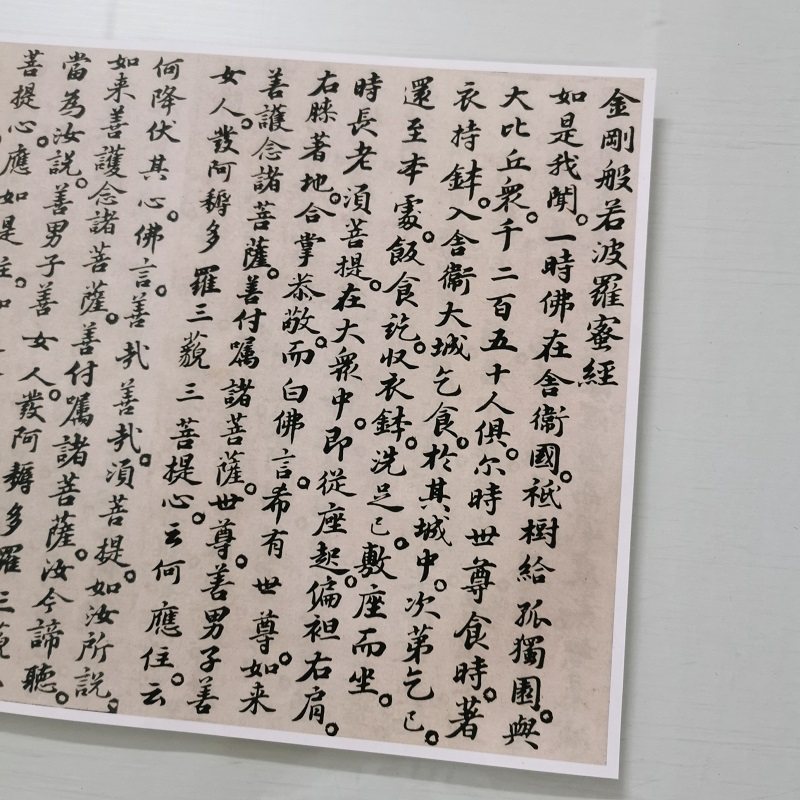 金剛般若波羅蜜經
如是我聞。一時佛在舍衞國。祇樹給孤獨園。與
大比丘衆。千二百五十人俱。尒時世尊食時。著
衣持鉢。入舍衞大城乞食。於其城中。次第乞已。
還至本處。飯食訖。收衣鉢。洗足已。敷座而坐。
時長老須菩提。在大衆中。即從座起。偏袒右肩。
右膝著地。合掌恭敬。而白佛言。希有世尊。如来
善護念諸菩薩。善付囑諸菩薩。世尊。善男子善
女人。發阿耨多羅三藐三菩提心。云何應住。云
何降伏其心。佛言。善哉善哉。須菩提。如汝所說。
如来善護念諸菩薩。善付囑諸菩薩。汝今諦聽。
當為汝說。善男子善女人。發阿耨多羅三藐
菩提心。應如是住。如